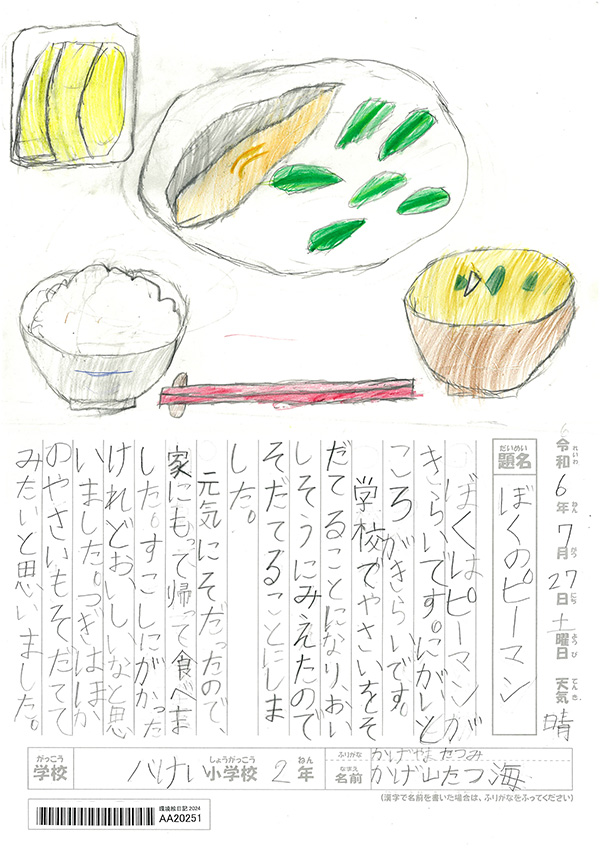 令和6年7月27日土曜日 天気晴
れいわ ねん がつ にち ようび てんき
だいめい
題名
ぼくのピーマン
ぼくはピーマンが
きらいです。にがいと
ころがきらいです。
学校でやさいをそ
だてることになり、おい
しそうにみえたので
そだてることにしま
した。
元気にそだったので、
家にもって帰って食べま
した。すこしにがかった
けれどおいしいなと思
いました。つぎはほか
のやさいもそだてて
みたいと思いました。
がっこう
学校
しょうがっこう ねん
八けい小学校 2年
ふりがな かげやまたつみ
なまえ
名前 かげ山たつ海
(漢字で名前を書いた場合は、ふりがなをふってください)
環境絵日記2024
AA20251